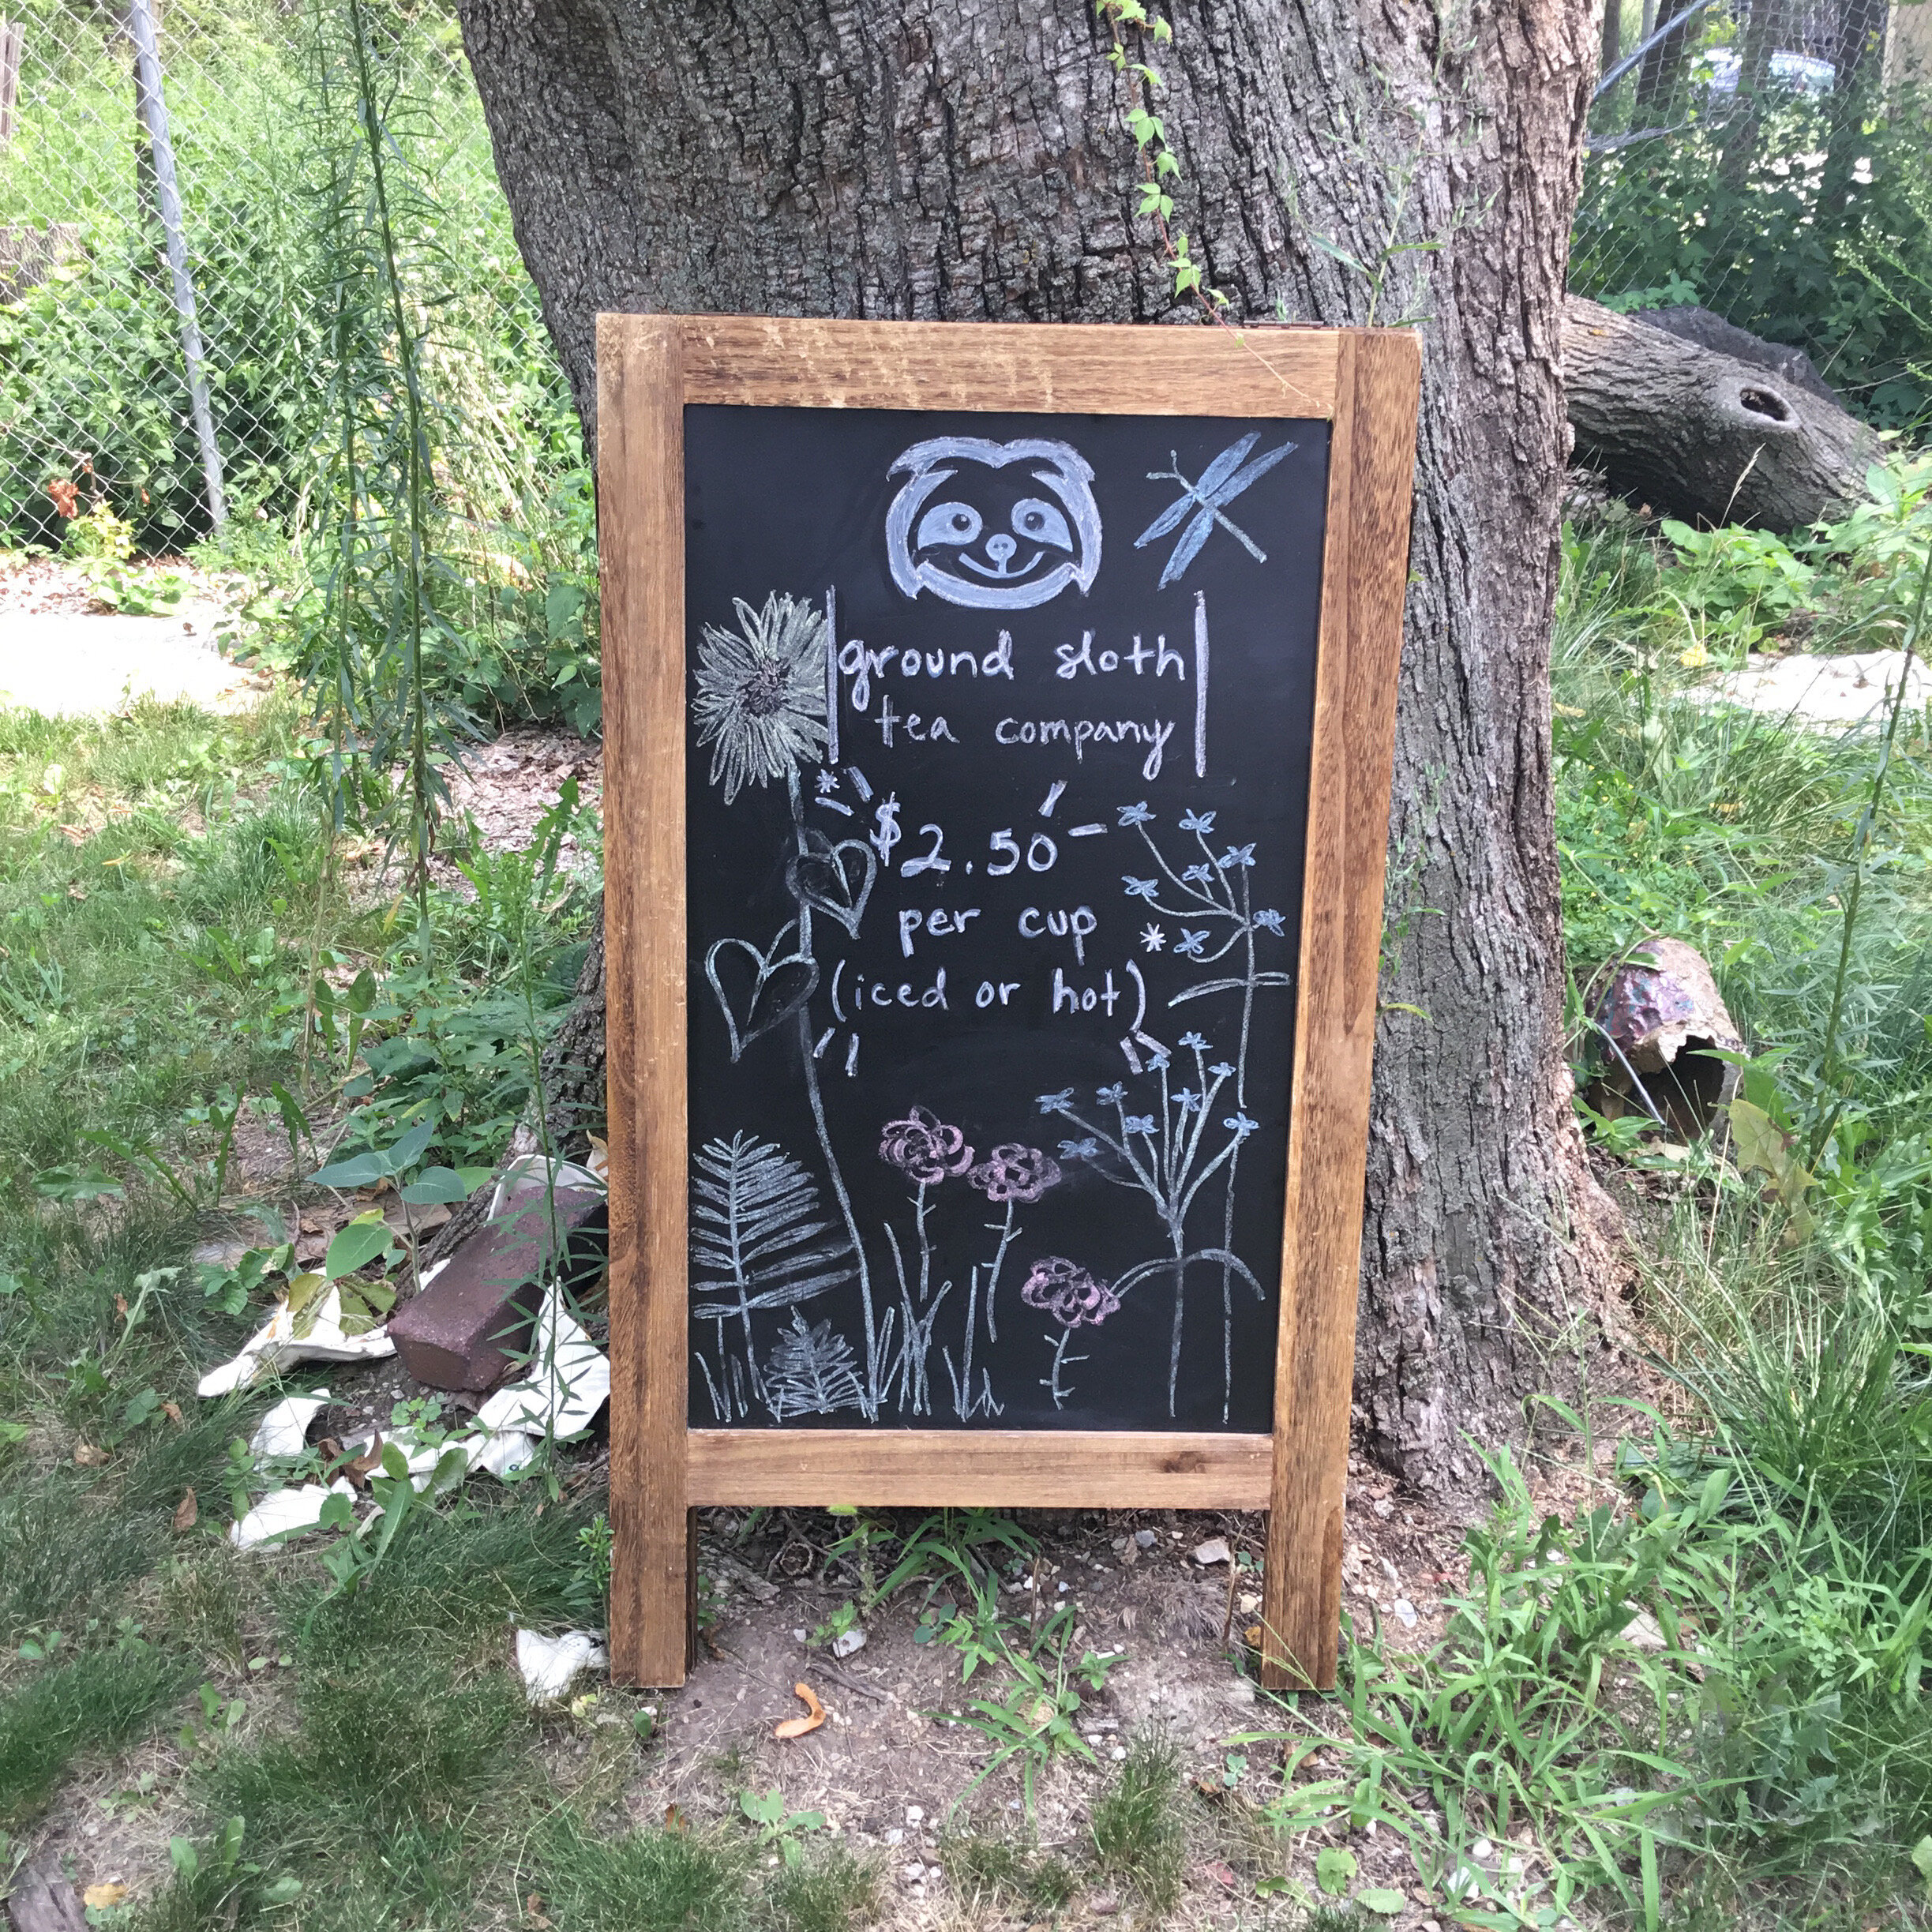 ground sloth
tea company
$2.50
per cup
(iced or hot)